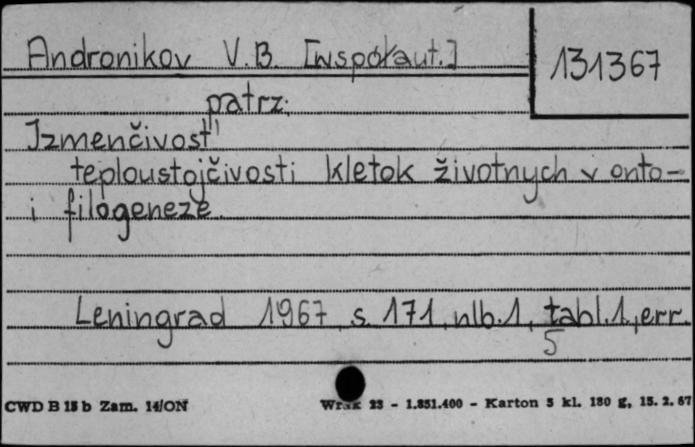 Andronikov V.B. [współaut.]
131367
patrz:
Izmenčivost'
teploustojčivosti kletok životnych v onto-
i filogeneze.
Leningrad 1967, s. 171, nlb. 1, tabl. 1., err.
5
CWD B 15 b Zam. 14/ON Wrsk 23 - 1.851.400 - Karton 5 kl. 180 g, 15. 2. 67